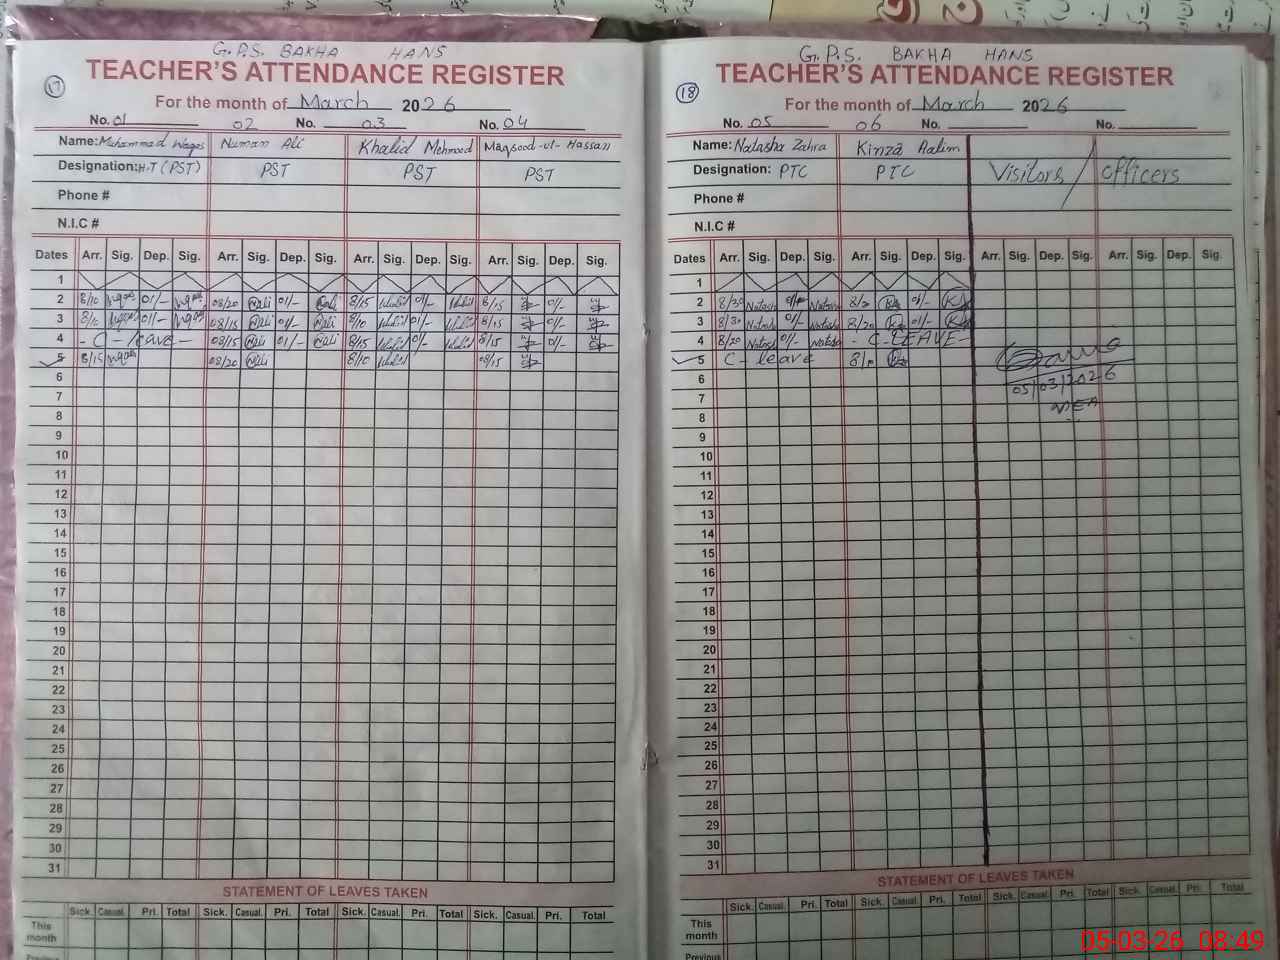 G.P.S. BAKHA HANS
TEACHER'S ATTENDANCE REGISTER
17
For the month of March 2026
No. 01 02 No. 03 No. 04
Name: Muhammad Waqas Numan Ali Khalid Mehmood Maqsood-ul-Hassan
Designation: H.T (PST) PST PST PST
Phone #
N.I.C #
Dates Arr. Sig. Dep. Sig. Arr. Sig. Dep. Sig. Arr. Sig. Dep. Sig. Arr. Sig. Dep. Sig.
1
2 8/10 Waqas 01/- Waqas 08/20 Nali 01/- Nali 8/15 Khalid 01/- Khalid 8/15 0/-
3 8/10 Waqas 01/- Waqas 08/15 Nali 01/- Nali 8/10 Khalid 01/- Khalid 8/15 0/-
4 - C - leave - 08/15 Nali 01/- Nali 8/15 Khalid 0/- Khalid 8/15 0/-
5 8/15 Waqas 08/20 Nali 8/10 Khalid 08/15
6
7
8
9
10
11
12
13
14
15
16
17
18
19
20
21
22
23
24
25
26
27
28
29
30
31
STATEMENT OF LEAVES TAKEN
Sick. Casual. Pri. Total Sick. Casual. Pri. Total Sick. Casual. Pri. Total Sick. Casual. Pri. Total
This month
Previous
G.P.S. BAKHA HANS
TEACHER'S ATTENDANCE REGISTER
18
For the month of March 2026
No. 05 06 No. No.
Name: Natasha Zahra Kinza Aalim
Designation: PTC PTC Visitors / Officers
Phone #
N.I.C #
Dates Arr. Sig. Dep. Sig. Arr. Sig. Dep. Sig. Arr. Sig. Dep. Sig. Arr. Sig. Dep. Sig.
1
2 8/30 Natasha 0/- Natasha 8/20 K 01/- K
3 8/30 Natasha 0/- Natasha 8/20 K 01/- K
4 8/20 Natasha 0/- Natasha - C - LEAVE -
5 C - leave K
6
05/03/2026
7
MEA
8
9
10
11
12
13
14
15
16
17
18
19
20
21
22
23
24
25
26
27
28
29
30
31
STATEMENT OF LEAVES TAKEN
Sick. Casual. Pri. Total Sick. Casual. Pri. Total Sick. Casual. Pri. Total Sick. Casual. Pri. Total
This month
Previous
05-03-26 08:49